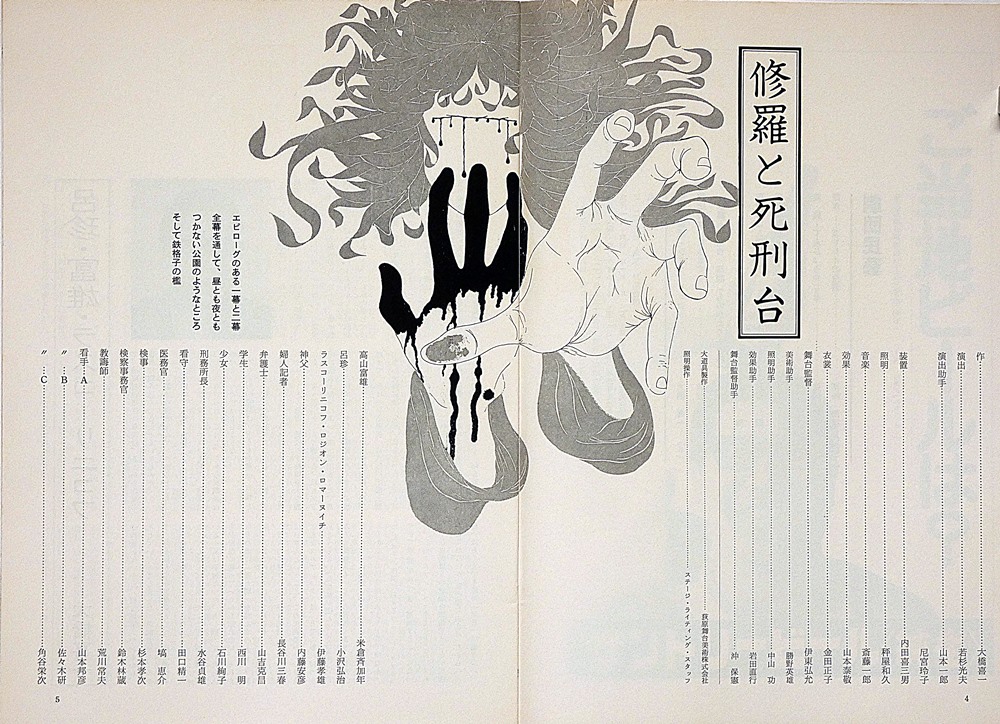 修羅と死刑台
作……大橋喜一
演出……若杉光夫
演出助手……山本一郎
尼宮玲子
装置……内田喜三男
照明……秤屋和久
音楽……斎藤一郎
効果……山本泰敬
衣裳……金田正子
舞台監督……伊東弘允
美術助手……勝野英雄
照明助手……中山　功
効果助手……岩田直行
舞台監督助手……沖　保憲
大道具製作……荻原舞台美術株式会社
照明操作……ステージ・ライティング・スタッフ
4
エピローグのある一幕と二幕
全幕を通して、昼とも夜とも
つかない公園のようなところ
そして鉄格子の檻
高山富雄……米倉斉加年
呂珍……小沢弘治
ラスコーリニコフ・ロジオン・ロマーヌイチ……伊藤孝雄
神父……内藤安彦
婦人記者……長谷川三春
弁護士……山吉克昌
学生……西川　明
少女……石川絢子
刑務所長……水谷貞雄
看守……田口精一
医務官……塙　恵介
検事……杉本孝次
検察事務官……鈴木林蔵
教誨師……荒川常夫
看手　A……山本邦彦
〃　B……佐々木研
〃　C……角谷栄次
5